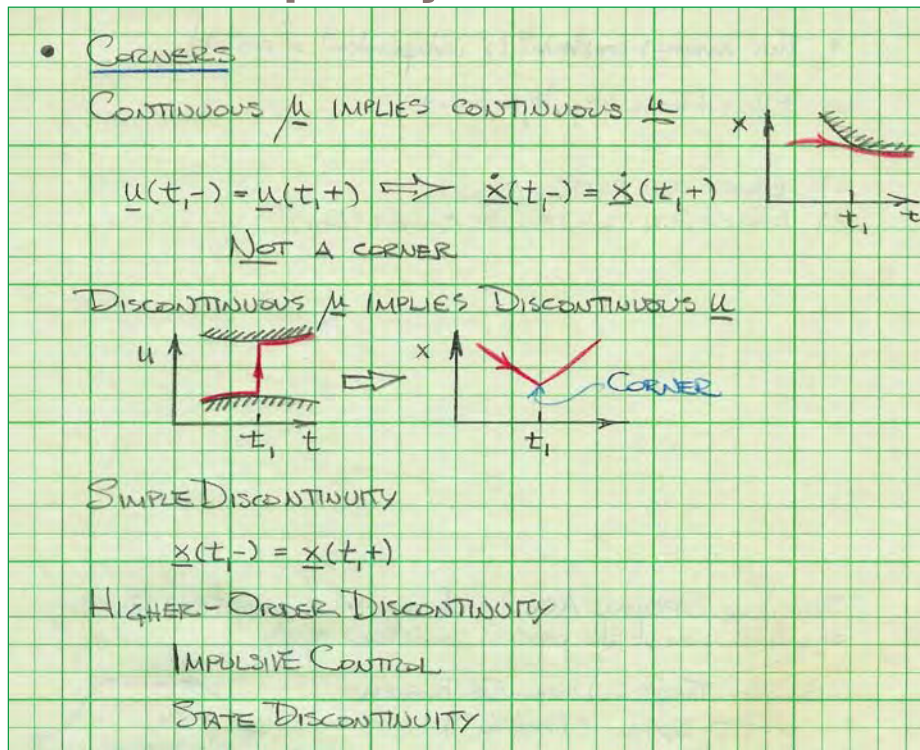 • CORNERS
CONTINUOUS μ IMPLIES CONTINUOUS u
x
u(t₁-) = u(t₁+) ⇒ ẋ(t₁-) = ẋ(t₁+)
t₁ t
NOT A CORNER
DISCONTINUOUS μ IMPLIES DISCONTINUOUS u
u ⇒ x
CORNER
t₁ t t₁
SIMPLE DISCONTINUITY
x(t₁-) = x(t₁+)
HIGHER-ORDER DISCONTINUITY
IMPULSIVE CONTROL
STATE DISCONTINUITY